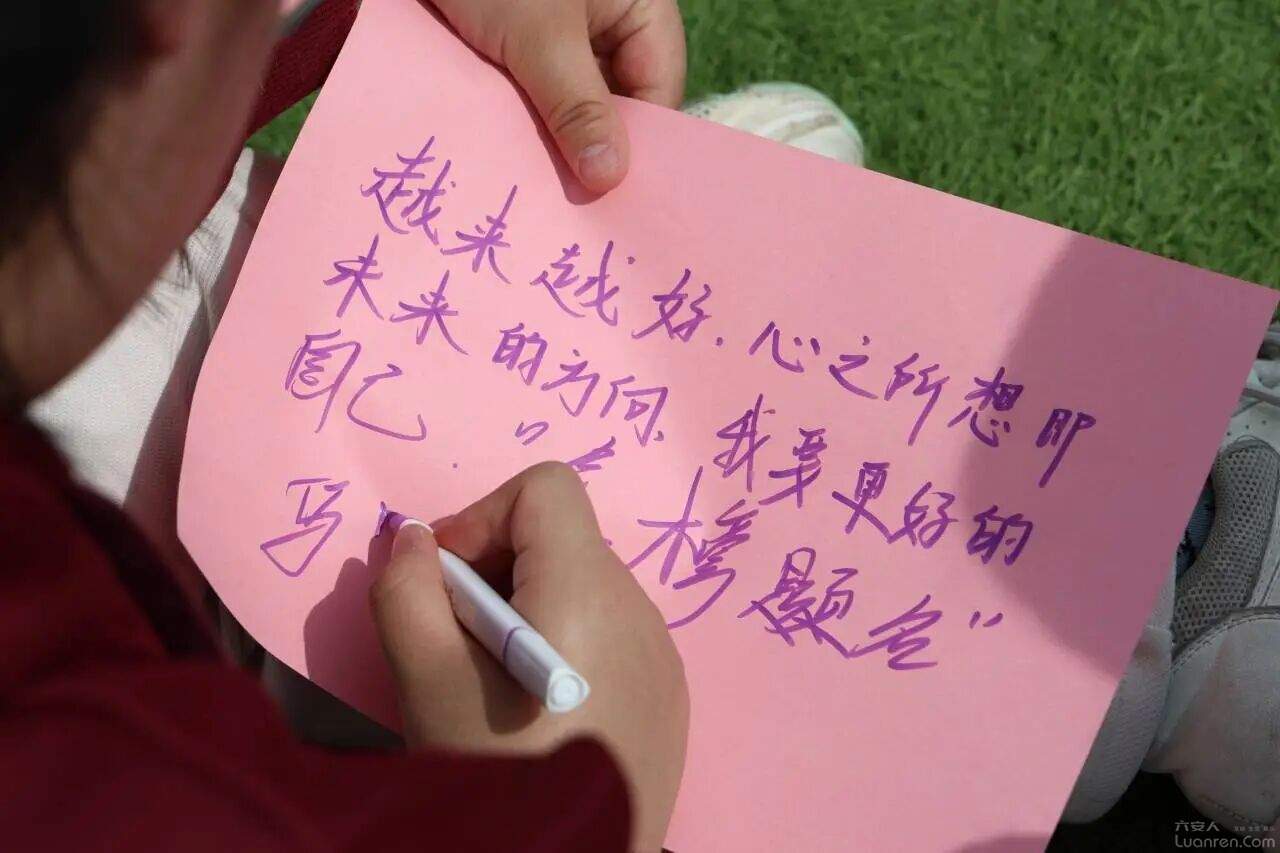 越来越好.心之所想即
未来的方向.我要更好的
自己.“ 榜题名”
写
六安人
Luanren.Com